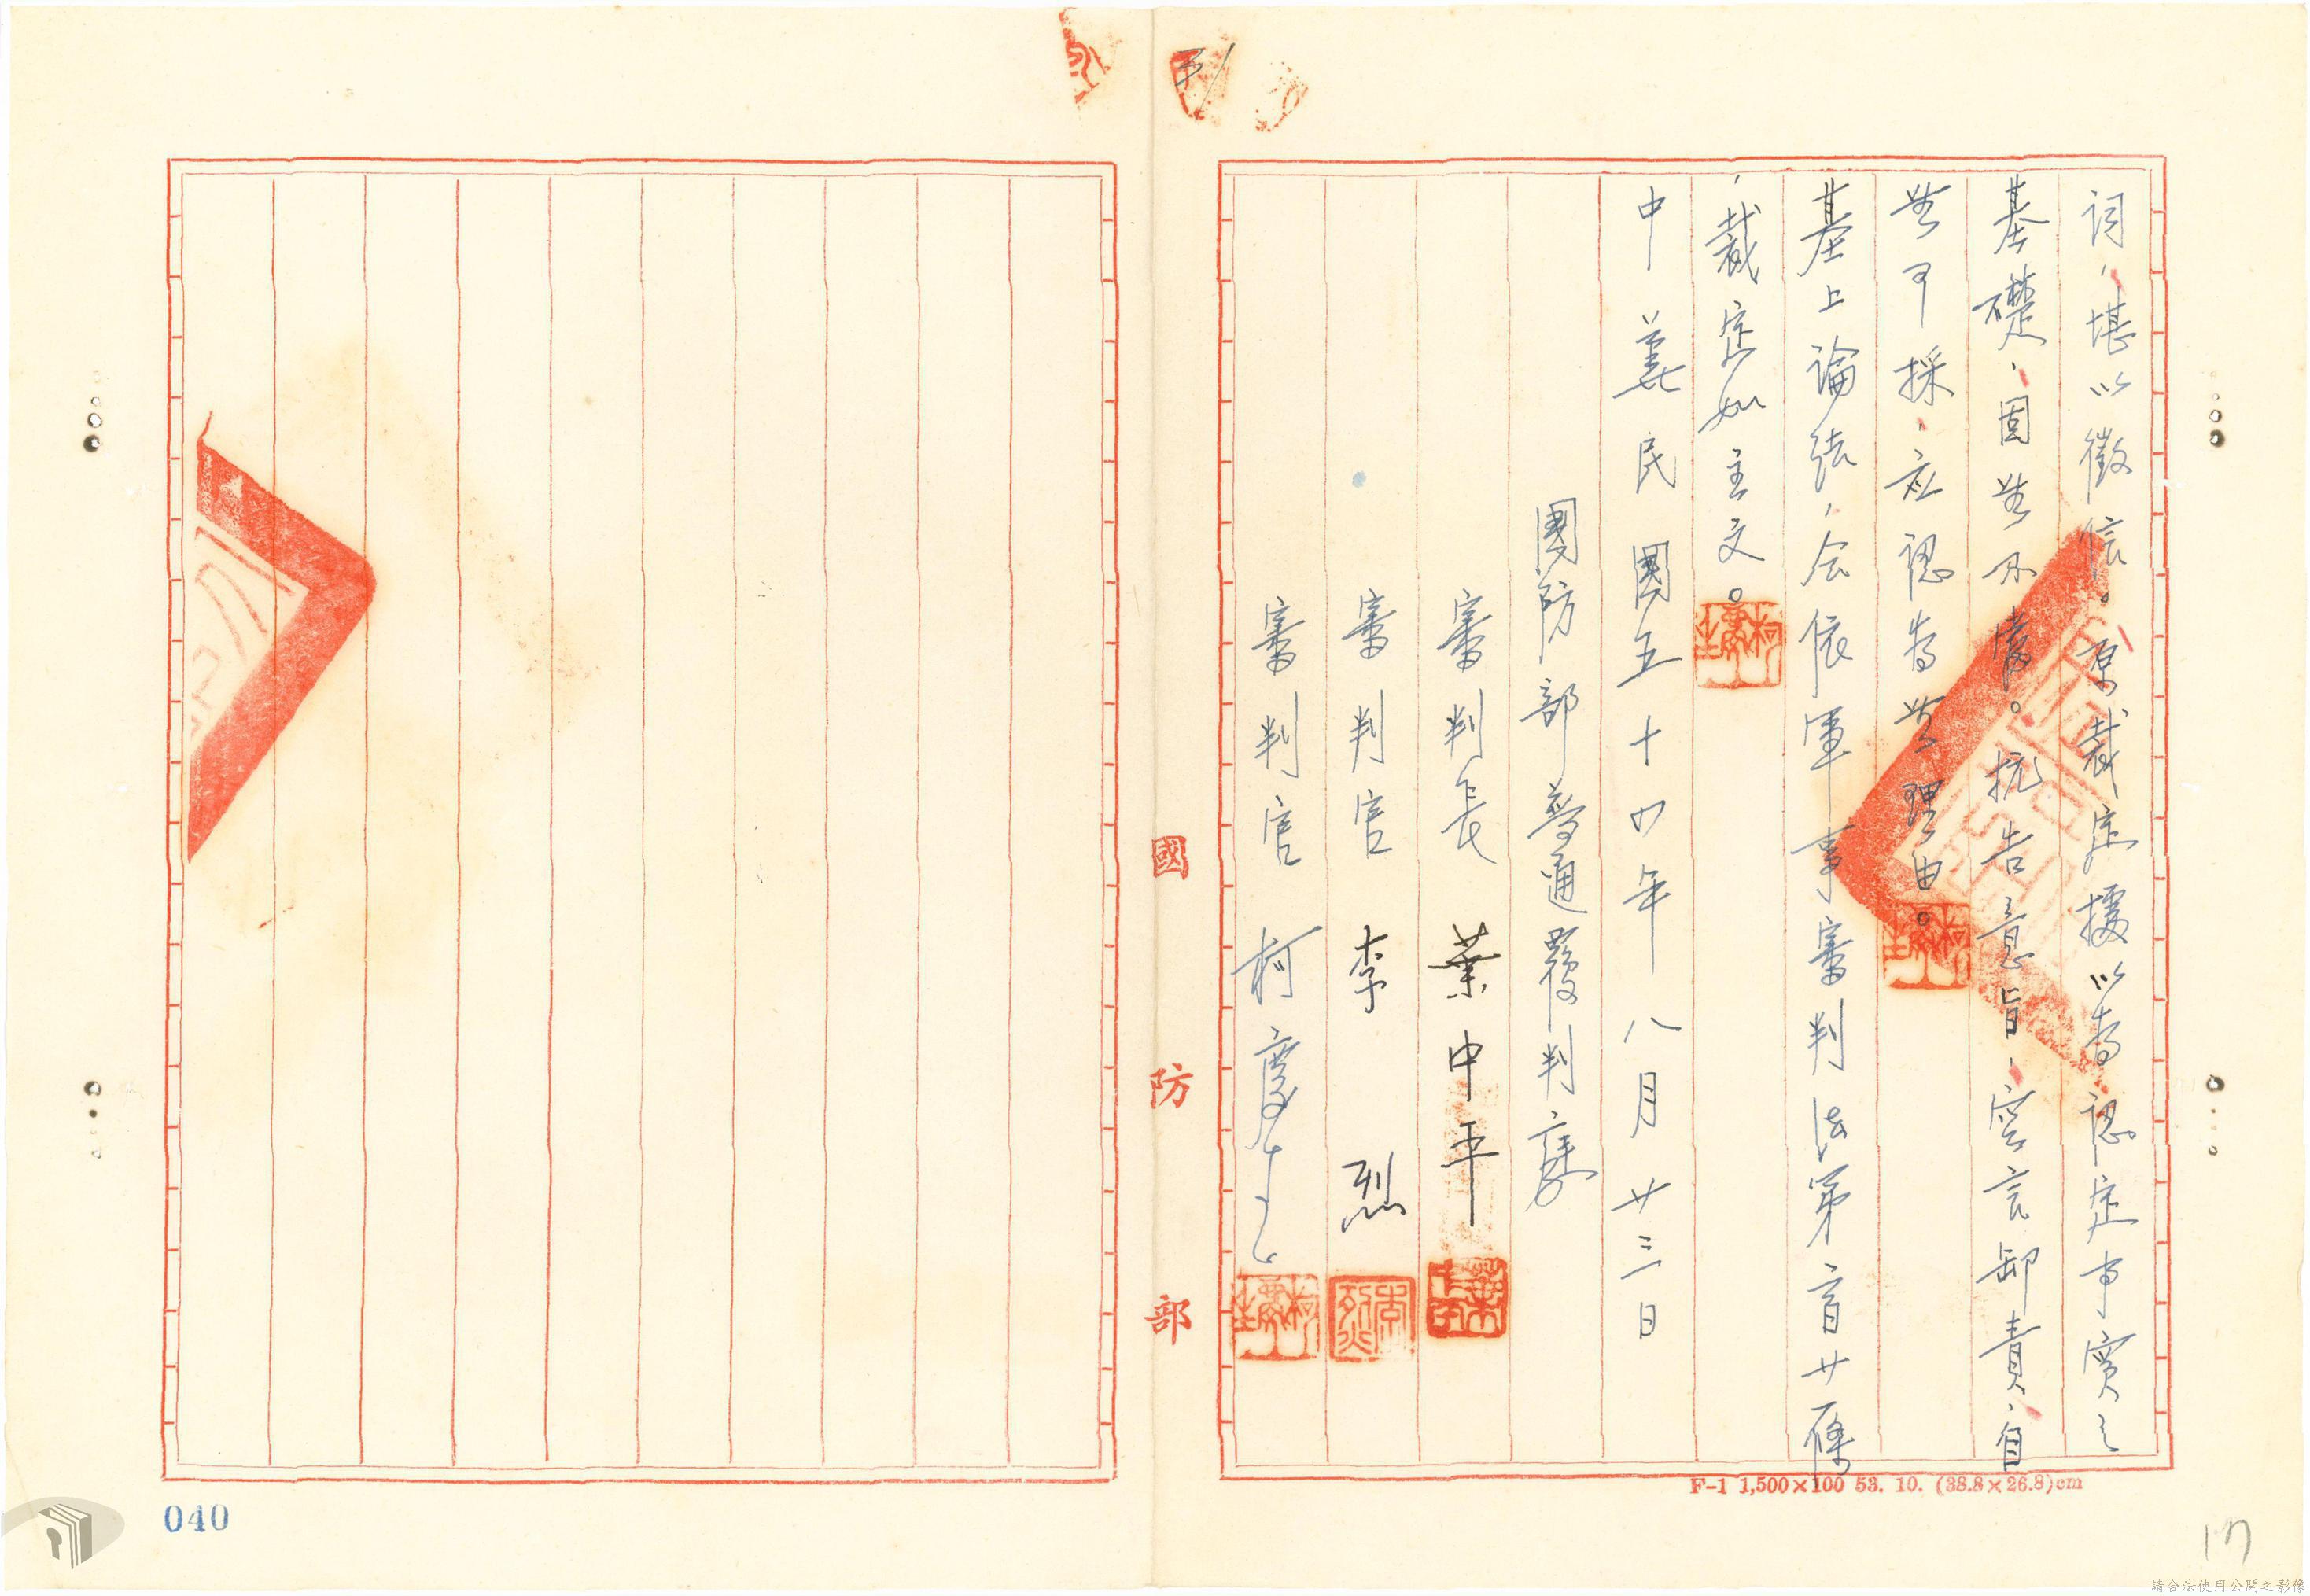 詞，堪以徵信。原裁定據以為認定事實之
基礎，固無不當。抗告意旨，空言卸責，自
無可採，應認為無理由。
基上論結，合依軍事審判法第二百廿條
，裁定如主文。
中華民國五十四年八月廿三日
國防部普通覆判庭
審判長 葉中平
審判官 李烈
審判官 柯慶生
國防部
F-1 1,500×100 53. 10. (38.8×26.8)cm
040
17
請合法使用公開之影像